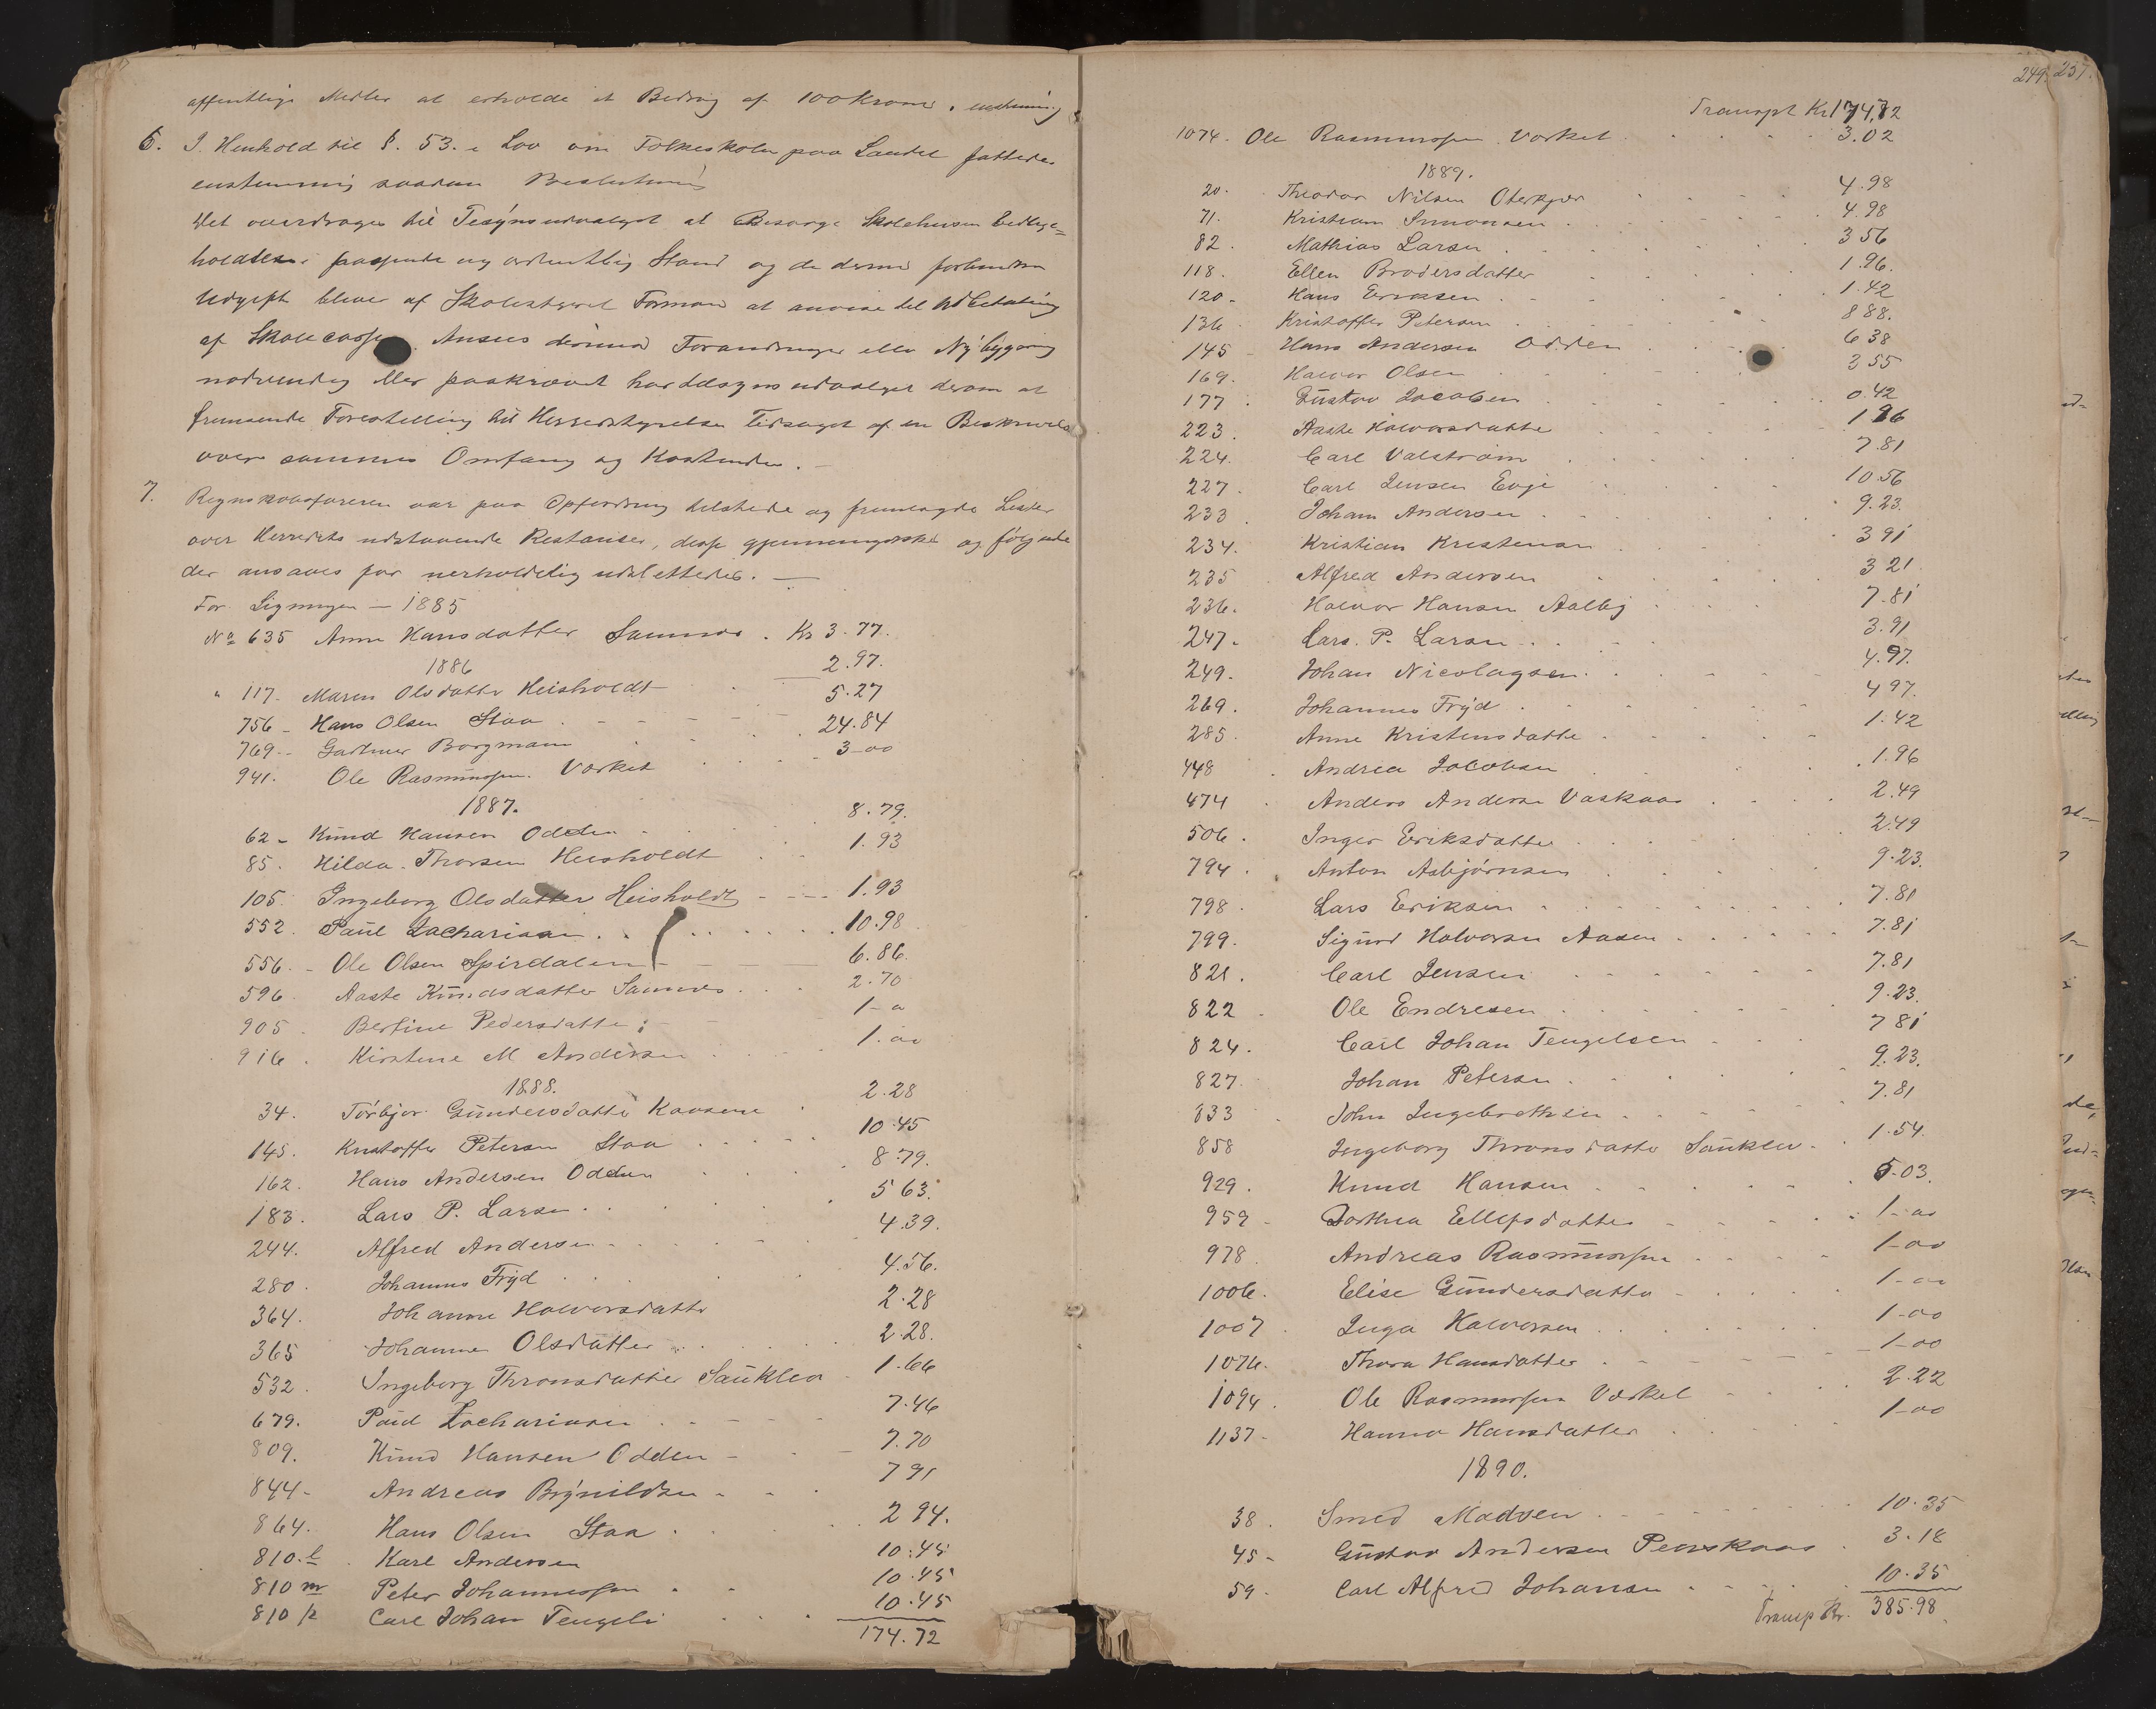 offentlige Midler at erholde et Bidrag af 100 Kroner. enstemmig
6. I Henhold til §. 53. i Lov om Folkeskolen paa Landet fattedes
enstemmig saadan Beslutning
Det overdrages til Tilsynsudvalget at Besørge Skolehusene vedlige=
holdte i passende og ordentlig Stand og de dermed forbundne
Udgifter bliver af Skolestyrets Formand at anvise til Udbetaling
af Skolecassen. Ansees derimod Forandringer eller Nybygning
nødvendig eller paakrævet har tilsynsudvalget derom at
fremsende Forestilling til Herredstyrelsen ledsaget af en Beskrivelse
over sammes Omfang og Kostende. —
7. Regnskabsføreren var paa Opfordring tilstede og fremlagde Lister
over Herredets udstaaende Restanser, disse gjennemgikkes og følgende
der ansaaes for uerholdelig udslettedes. —
For Ligningen — 1885
No 635 Anne Hansdatter Sannes . Kr 3.77.
1886 2.97.
" 117 - Maren Olsdatter Heisholdt 5.27
756 - Hans Olsen Staa 24.84
769 - Gartner Borgmann 3-00
941. Ole Rasmussen Værket
1887. 8.79.
62 - Knud Hansen Odden
85. Hilda Thorsen Heisholdt 1.93
105. Ingeborg Olsdatter Heisholdt 1.93
552. Paul Zachariasen 10.98
556. - Ole Olsen Spirdalen 6.86.
596. Aaste Knudsdatter Sannes 2.70
905. Bertine Pedersdatter 1-0
916. Kirstine M Andersen 1.00
1888.
34. Torbjør Gundersdatter 2.28
145. Kristoffer Petersen Staa 10.45
162. Hans Andersen Odden 8.79.
183. Lars P. Larsen 5 63.
244. Alfred Andersen 4.39.
280. Johannes Fryd 4.56.
364. Johanne Halvorsdatter 2.28
365 Johanne Olsdatter 2.28.
532. Ingeborg Thronsdatter Sauklev 1.66
679. Paul Zachariasen 7.46
809. Knud Hansen Odden 7.70
844 - Andreas Brynildsen 7 91
864. Hans Olsen Staa 2 94.
810.l Karl Andersen 10.45
810 m Peter Johannessen 10.45
810 k Carl Johan Tengels 10.45
174.72
249. 251.
Transpt Kr 174,72
1074. Ole Rasmussen Værket 3.02
1889.
20. Theodor Nilsen Oterkjær 4.98
71. Kristian Simonsen 4.98
82. Mathias Larsen 3 56
118. Ellen Brodersdatter 1.96.
120. Hans Eriksen 1.42
136 Kristoffer Petersen 8 88.
145 Hans Andersen Odden 6 38
169. Halvor Olsen 3 55
177 Gustav Jacobsen 0.42
223. Aaste Halvorsdatter 1 96
224. Carl Valstrøm 7.81
227. Carl Jensen Evje 10.56
233 Johan Andersen 9.23.
234. Kristian Kristensen 3 91
235 Alfred Andersen 3 21.
236. Halvor Hansen Aalby 7.81
247. Lars. P. Larsen 3.91
249. Johan Nicolaysen. 4.97.
269. Johannes Fryd 4 97.
285. Anne Kristensdatter 1.42
448 Andrea Jacobsen 1.96
474 Anders Andersen Vaskaas 2.49
506. Inger Eriksdatter 2.49
794. Anton Asbjørnsen 9.23.
798. Lars Eriksen 7.81
799. Sigurd Halvorsen Aasen 7.81
821. Carl Jensen 7.81
822 Ole Endresen 9.23.
824. Carl Johan Tengelsen 7 81
827. Johan Petersen 9.23.
833 John Ingebretsen 7.81
858 Ingeborg Thronsdatter Sauklev 1.54.
929. Knud Hansen 5.03.
959 - Dorthea Ellefsdatter 1-00
978. Andreas Rasmussen 1-00
1006. Elise Gundersdatter 1-00
1007 Inga Halvorsen 1-00
1076. Thora Hansdatter 1-00
1094. Ole Rasmussen Værket 2.22
1137 - Hanna Hansdatter 1-00
1890.
38. Smed Madsen 10.35
45 - Gustav Andersen 3.18
59. Carl Alfred Johansen 10.35
Transp Kr. 385.98